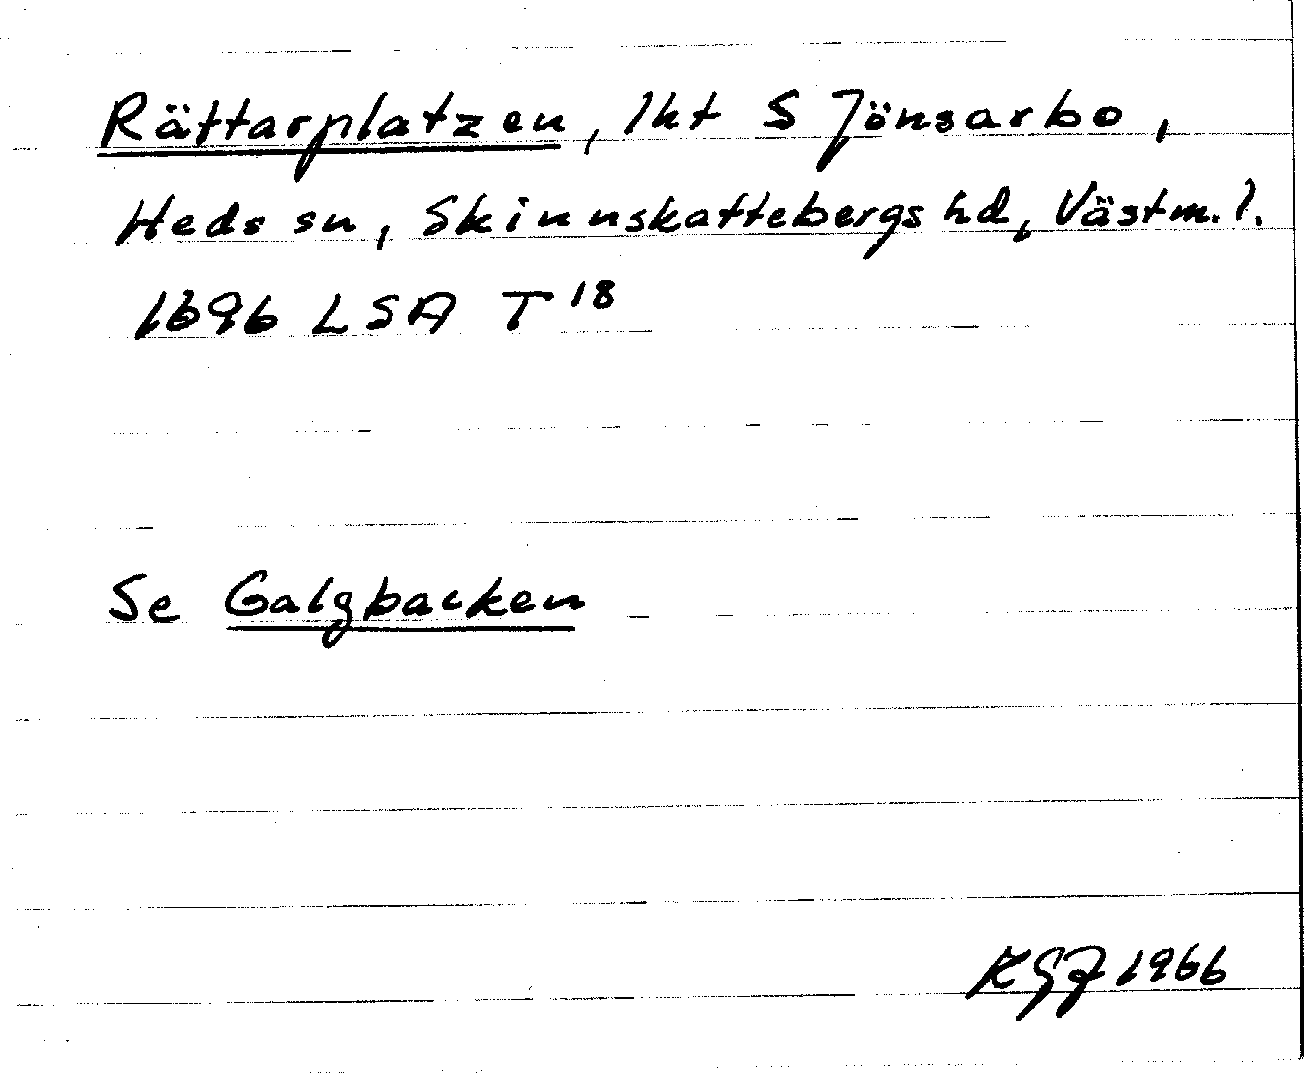 Rättarplatzen, lht S Jönsarbo,
Heds sn, Skinnskattebergs hd, Västm. l.
1696 LSA T 18
Se Galgbacken
KGJ 1966